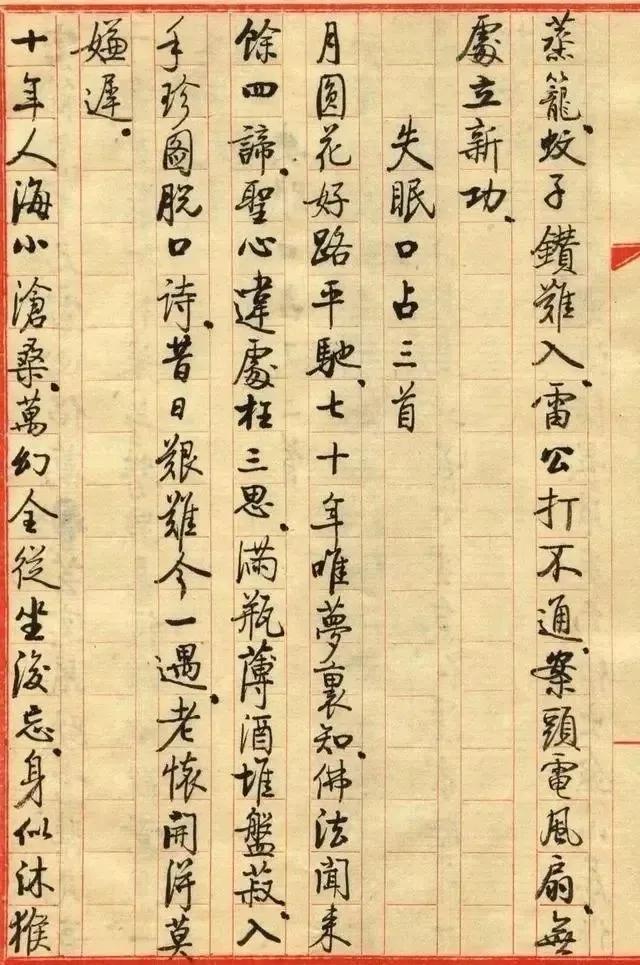 蒸籠、蚊子鑽難入、雷公打不通、案頭電風扇、無
處立新功、
失眠口占三首
月圓花好路平馳、七十年唯夢裏知、佛法聞來
餘四諦、聖心違處枉三思、滿瓶薄酒堆盤菽、入
手珍圖脫口诗、昔日艱難今一遇、老懷開得莫
嫌遲、
十年人海小滄桑、萬幻全從坐後忘、身似沐猴